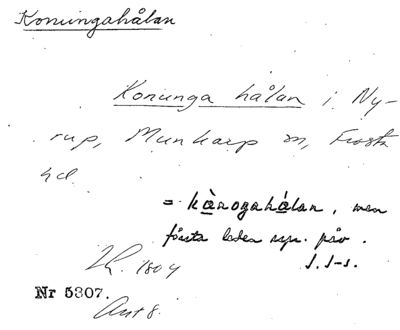 Konungahålan
Konunga hålan i Ny-
rup, Munkarp sn, Frosta
hd
= kànogahálan, men
första leden upr. påv.
J. S-s.
1804
Nr 5307.
Ant 8.